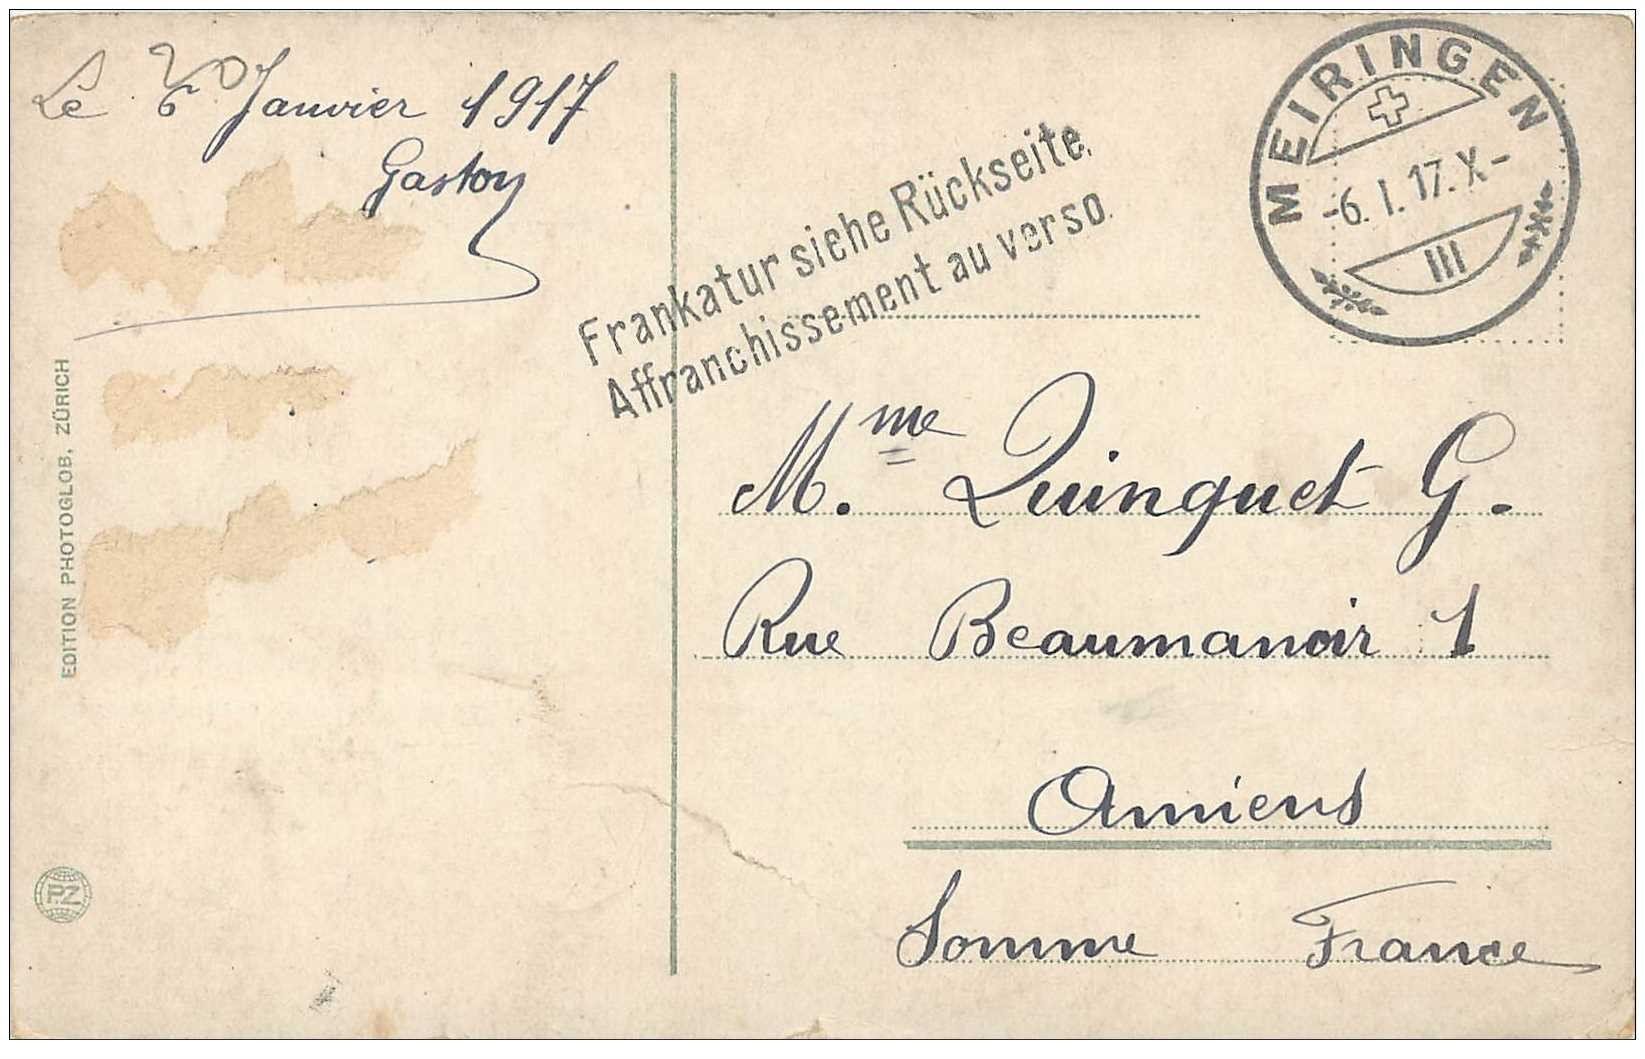 Le 6 Janvier 1917
Gaston
Frankatur siehe Rückseite.
Affranchissement au verso.
MEIRINGEN
-6. I. 17. X-
III
Mme Quinquet G.
Rue Beaumanoir 1
Amiens
Somme France
EDITION PHOTOGLOB, ZÜRICH
PZ